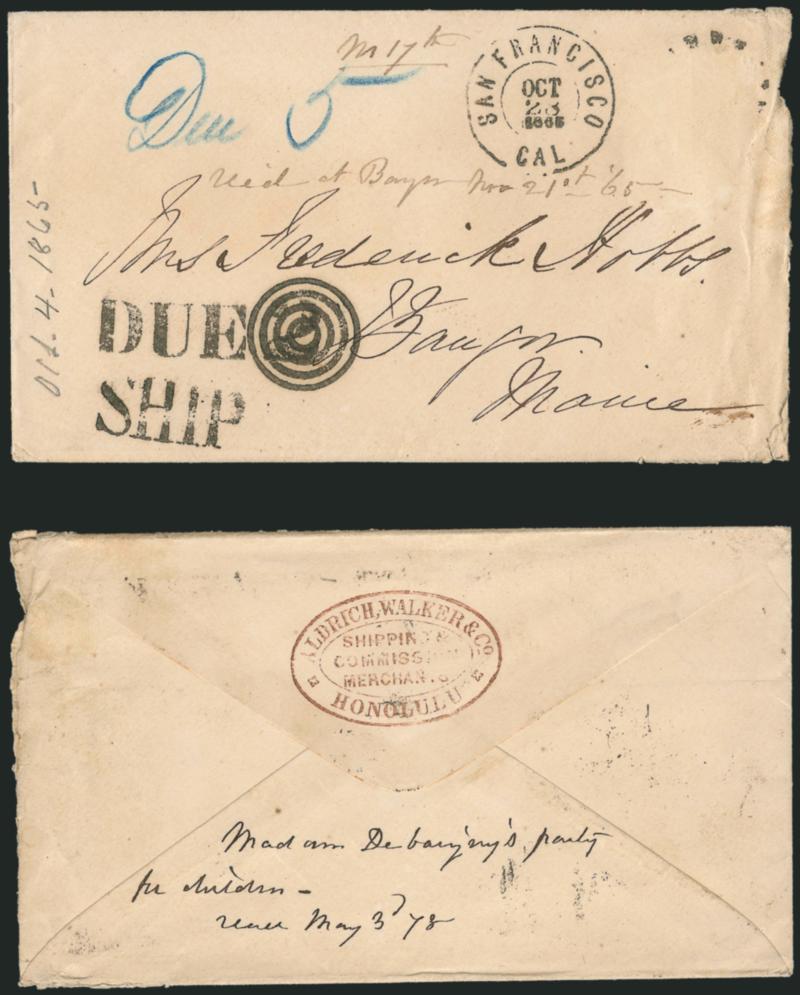 M 17th
Due 5
SAN FRANCISCO
OCT
23
1865
CAL
Recd at Bangor Nov 21st '65-
Mrs Frederick Hobbs.
Bangor
Maine
Oct. 4 - 1865
DUE
SHIP
ALDRICH, WALKER & Co.
SHIPPING &
COMMISSION
MERCHANTS
HONOLULU
Madam party
for children -
May 3d 78